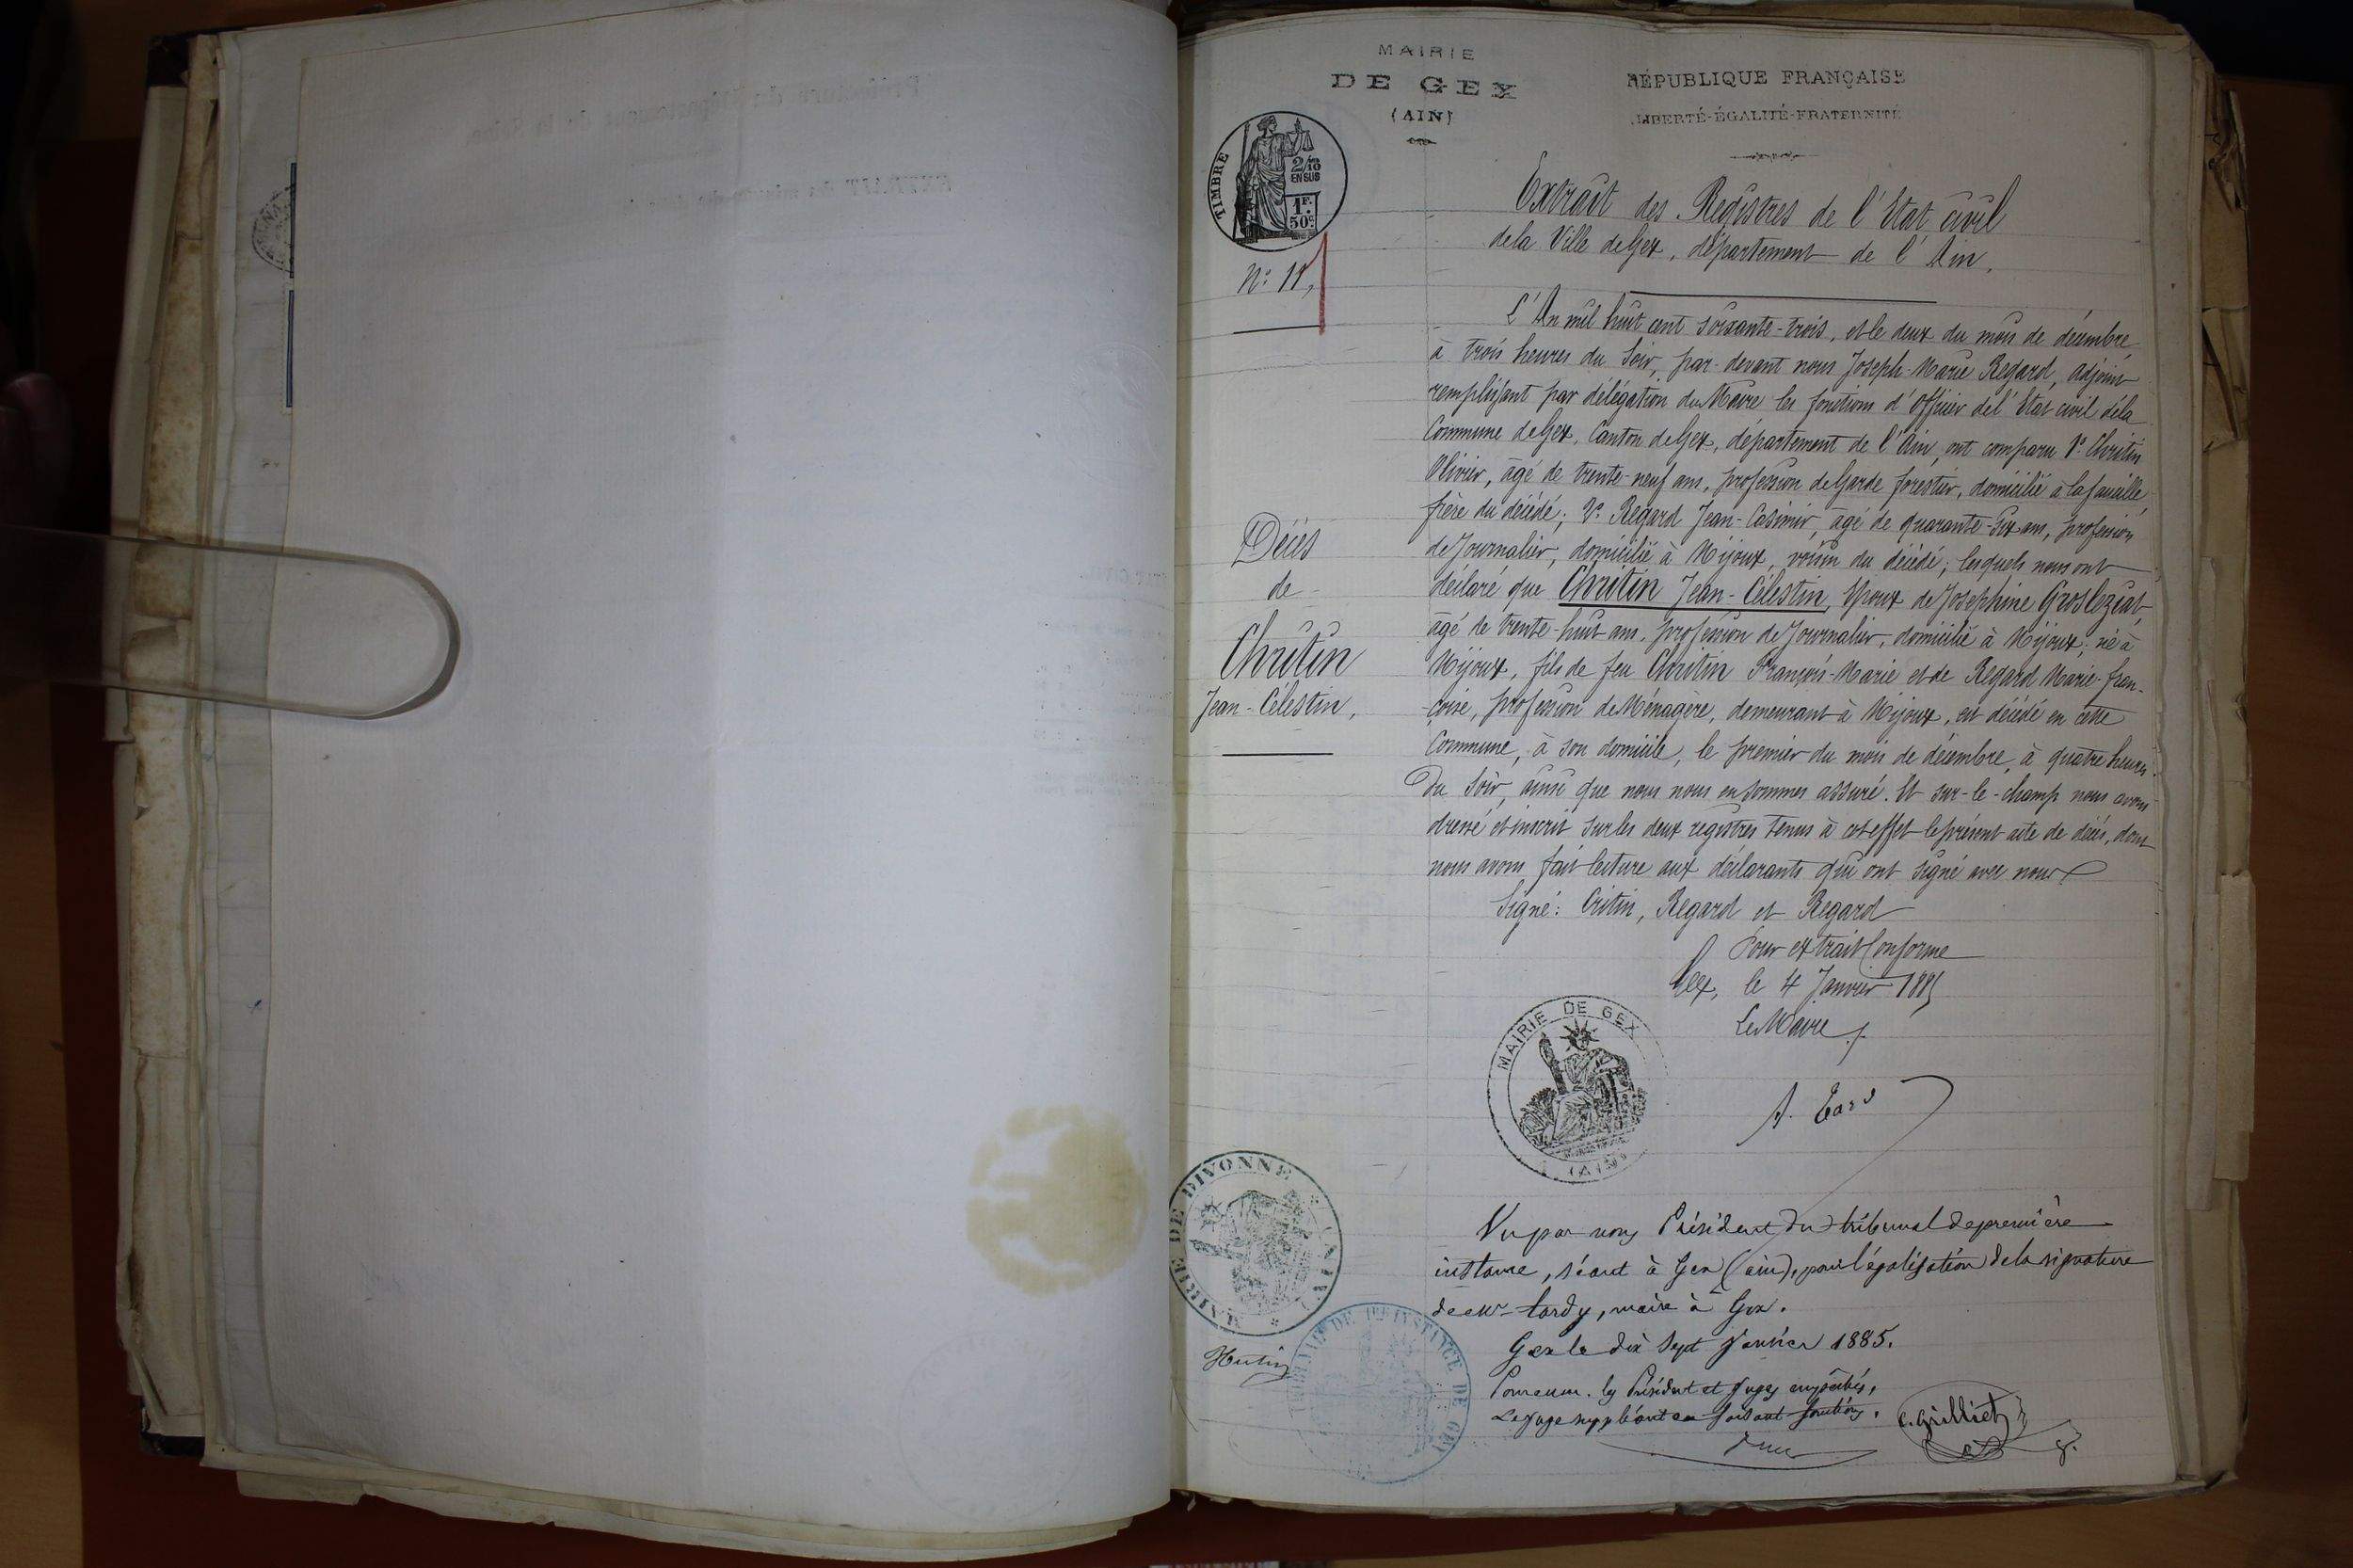 MAIRIE
DE GEX
(AIN)
RÉPUBLIQUE FRANÇAISE
LIBERTÉ-ÉGALITÉ-FRATERNITÉ
TIMBRE
2/10
EN SUS
1F.
50c.
N° 11,
Extrait des Registres de l'Etat civil
de la Ville de Gex, département de l'Ain.
L'An mil huit cent soixante-trois, et le deux du mois de décembre
à trois heures du soir, par-devant nous Joseph-Marie Regard, adjoint
remplissant par délégation du Maire les fonctions d'officier de l'Etat civil de la
Commune de Gex, Canton de Gex, département de l'Ain, ont comparu 1° Chritin
Olivier, âgé de trente-neuf ans, profession de Garde forestier, domicilié à Lafaucille,
frère du décédé; 2° Regard Jean-Casimir, âgé de quarante-six ans, profession
de Journalier, domicilié à Mijoux, voisin du décédé; lesquels nous ont
déclaré que Chritin Jean-Célestin, époux de Joséphine Groslezíat,
âgé de trente-huit ans, profession de Journalier, domicilié à Mijoux, né à
Mijoux, fils de feu Chritin François-Marie et de Regard Marie-fran-
-çoise, profession de Ménagère, demeurant à Mijoux, est décédé en cette
Commune, à son domicile, le premier du mois de décembre, à quatre heures
du soir, ainsi que nous nous en sommes assuré. Et sur-le-champ nous avons
dressé et inscrit sur les deux registres tenus à cet effet le présent acte de décès, dont
nous avons fait lecture aux déclarants qui ont signé avec nous
Signé: Critin, Regard et Regard
Décès
de
Chritin
Jean-Célestin,
Pour extrait Conforme
Gex, le 4 Janvier 1885
Le Maire,
MAIRIE DE GEX
(AIN)
MAIRIE DE DIVONNE
(AIN)
Vu par nous Président du tribunal de première
instance, séant à Gex (ain), pour légalisation de la signature
de Mr tardy, maire à Gex.
Gex le dix sept janvier 1885.
Pour MM. les Président et juges empêchés,
Le juge suppléant en faisant fonctions.
TRIBUNAL DE 1RE INSTANCE DE GEX
Hutin
C. Grilliet